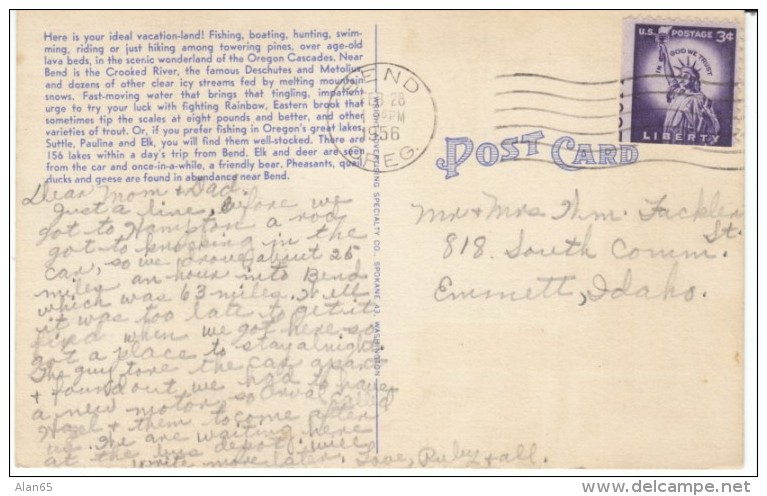 Here is your ideal vacation-land! Fishing, boating, hunting, swim-
ming, riding or just hiking among towering pines, over age-old
lava beds, in the scenic wonderland of the Oregon Cascades. Near
Bend is the Crooked River, the famous Deschutes and Metolius
and dozens of other clear icy streams fed by melting mountain
snows. Fast-moving water that brings that tingling, impatient
urge to try your luck with fighting Rainbow, Eastern brook that
sometimes tip the scales at eight pounds and better, and other
varieties of trout. Or, if you prefer fishing in Oregon's great lakes,
Suttle, Paulina and Elk, you will find them well-stocked. There are
156 lakes within a day's trip from Bend. Elk and deer are seen
from the car and once-in-a-while, a friendly bear. Pheasants, quail
ducks and geese are found in abundance near Bend.
Dear Mom & Dad.
Just a line, before we
got to Hampton a rod
got to knocking in the
car, so we drove about 25
miles an hour into Bend
which was 63 miles. & ill
it was too late to get it
fixed when we got here so
got a place to stay all night.
The guy tore the car apart
& found out we had to have
a new motor, so Orval called
Hazel & them to come after
us. We are waiting here
at the bus depot. will
write more later. Love, Ruby & all.
ADVERTISING SPECIALTY CO., SPOKANE 43, WASHINGTON
BEND
FEB 28
PM
1956
OREG.
POST CARD
U.S. POSTAGE 3¢
IN GOD WE TRUST
LIBERTY
Mr & Mrs Wm. Fackler
818. South Comm. St.
Emmett, Idaho.
delcampe.net
Antik65